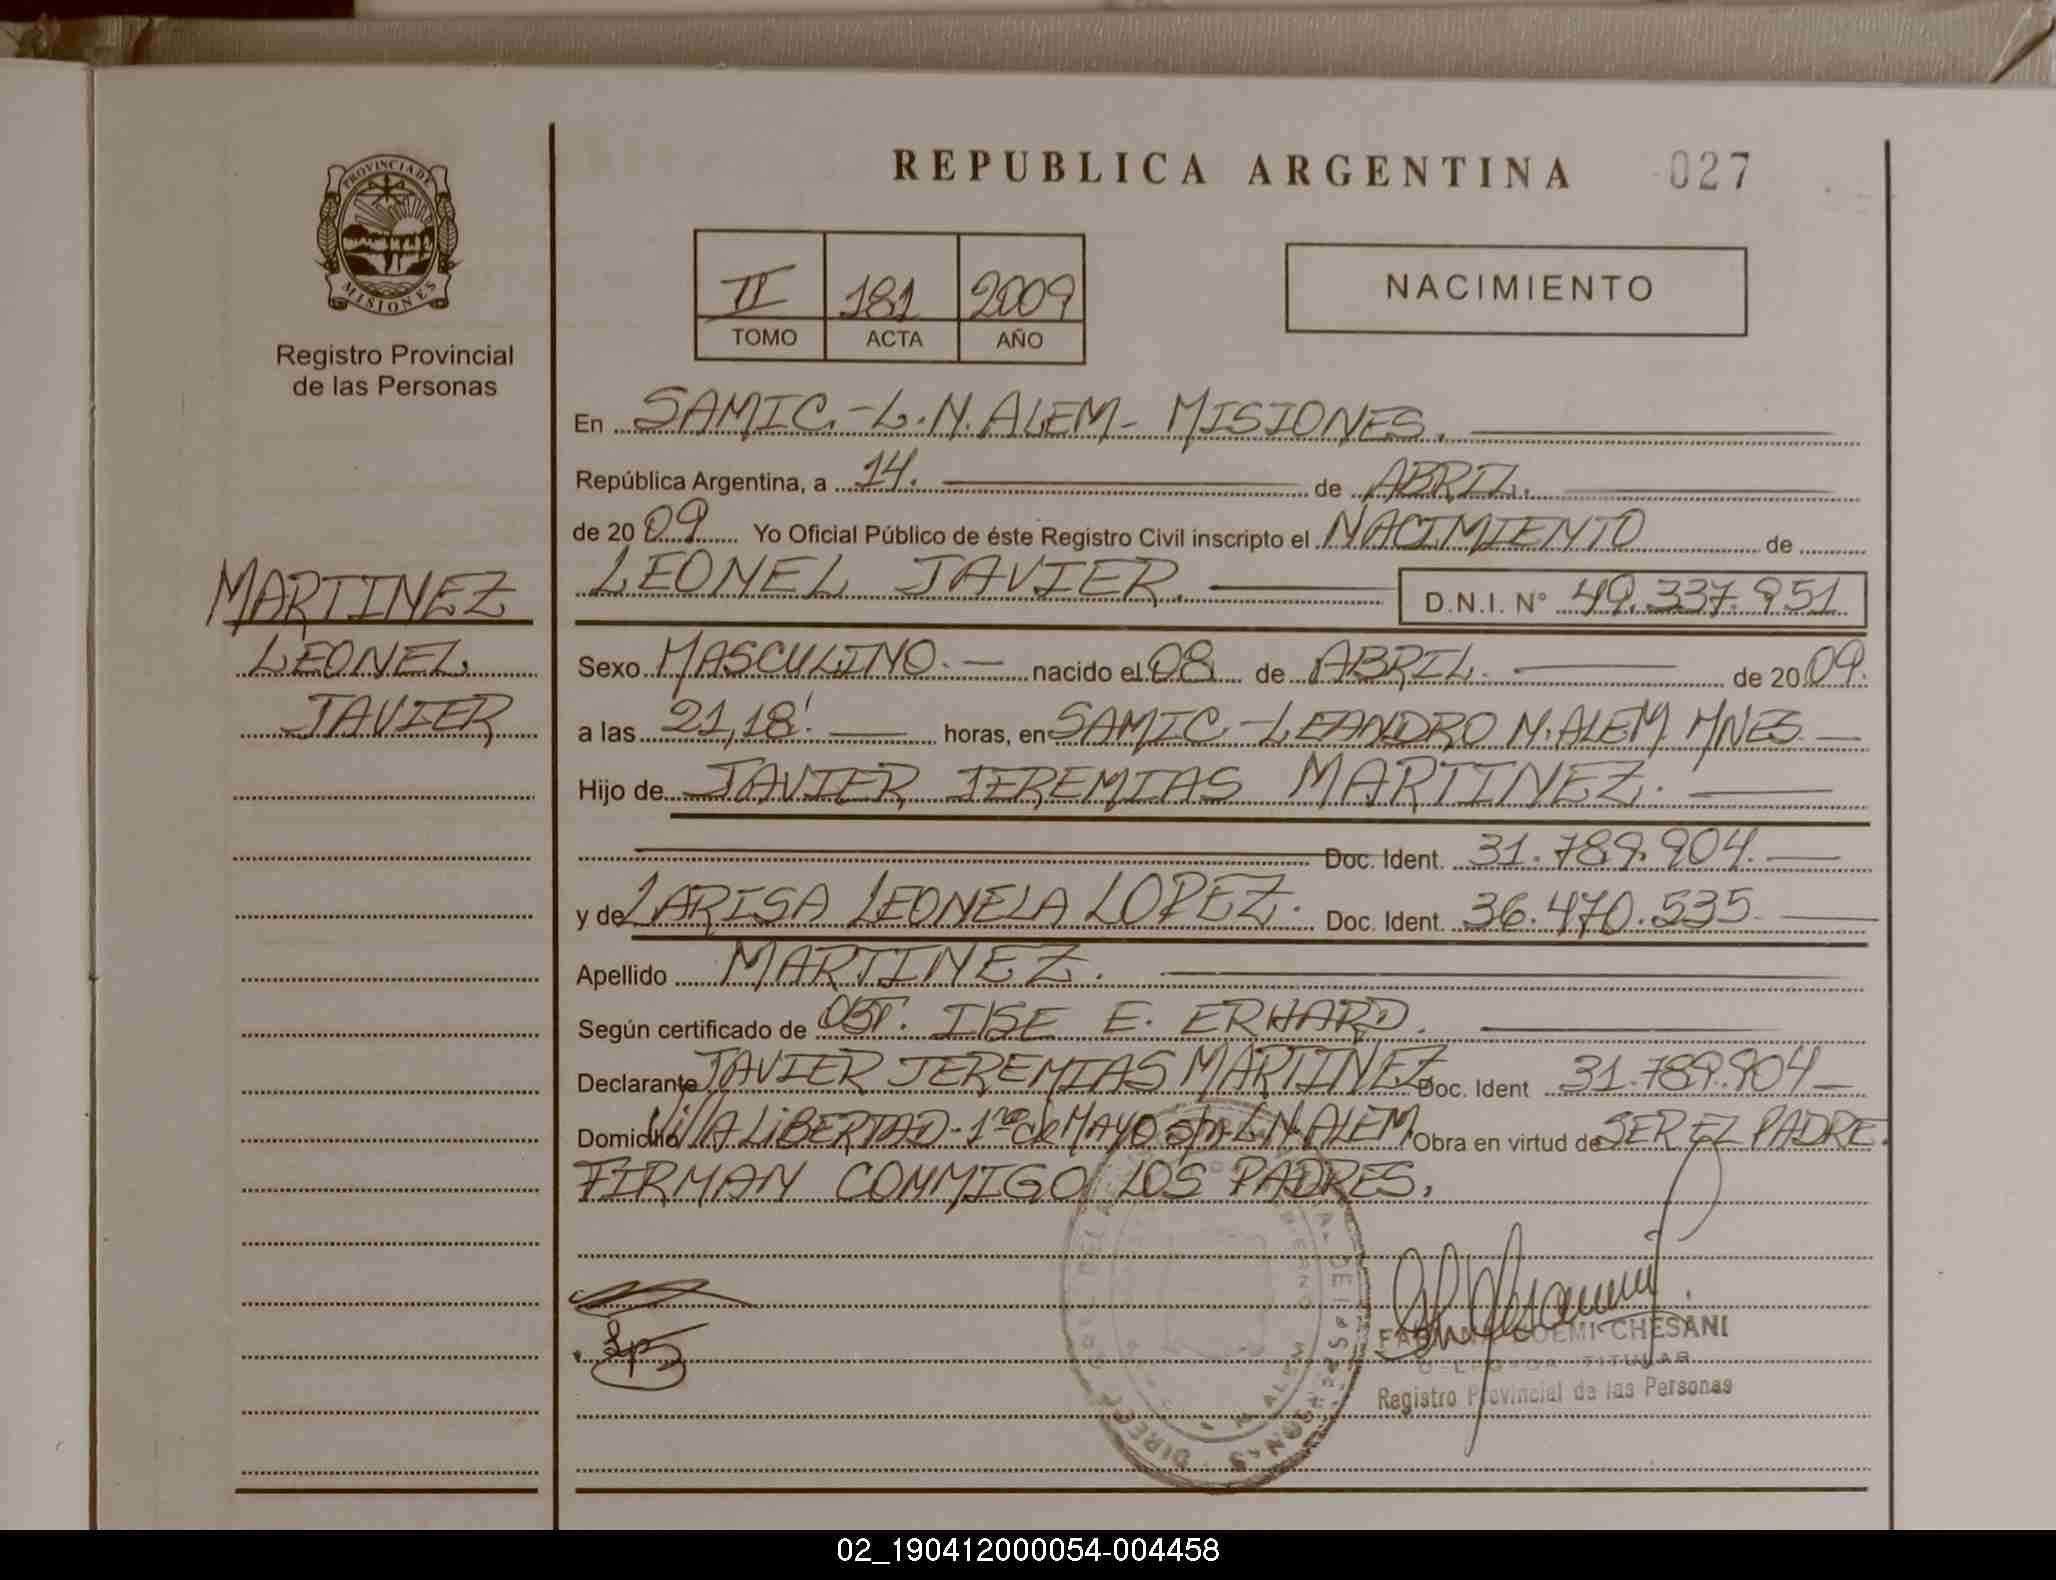 REPUBLICA ARGENTINA 027
PROVINCIA DE
MISIONES
Registro Provincial
de las Personas
II 181 2009
TOMO ACTA AÑO
NACIMIENTO
En SAMIC.-L.N.ALEM- MISIONES.
República Argentina, a 14. de ABRIL.
de 2009 Yo Oficial Público de éste Registro Civil inscripto el NACIMIENTO de
MARTINEZ
LEONEL
JAVIER
LEONEL JAVIER. D.N.I. N° 49.337.951
Sexo MASCULINO.- nacido el 08 de ABRIL. de 2009.
a las 21,18' horas, en SAMIC-LEANDRO N.ALEM MNES
Hijo de JAVIER JEREMIAS MARTINEZ.
Doc. Ident. 31.789.904.
y de LARISA LEONELA LOPEZ. Doc. Ident. 36.470.535
Apellido MARTINEZ.
Según certificado de OBT. ILSE E. ERHARD.
Declarante JAVIER JEREMIAS MARTINEZ Doc. Ident 31.789.904
Domicilio Villa LiBERTAD-1ro de MAYO s/n-L.N.ALEM Obra en virtud de SER EL PADRE.
FIRMAN CONMIGO LOS PADRES.
NOEMI CHESANI
DELEGADA TITULAR
Registro Provincial de las Personas
02_190412000054-004458